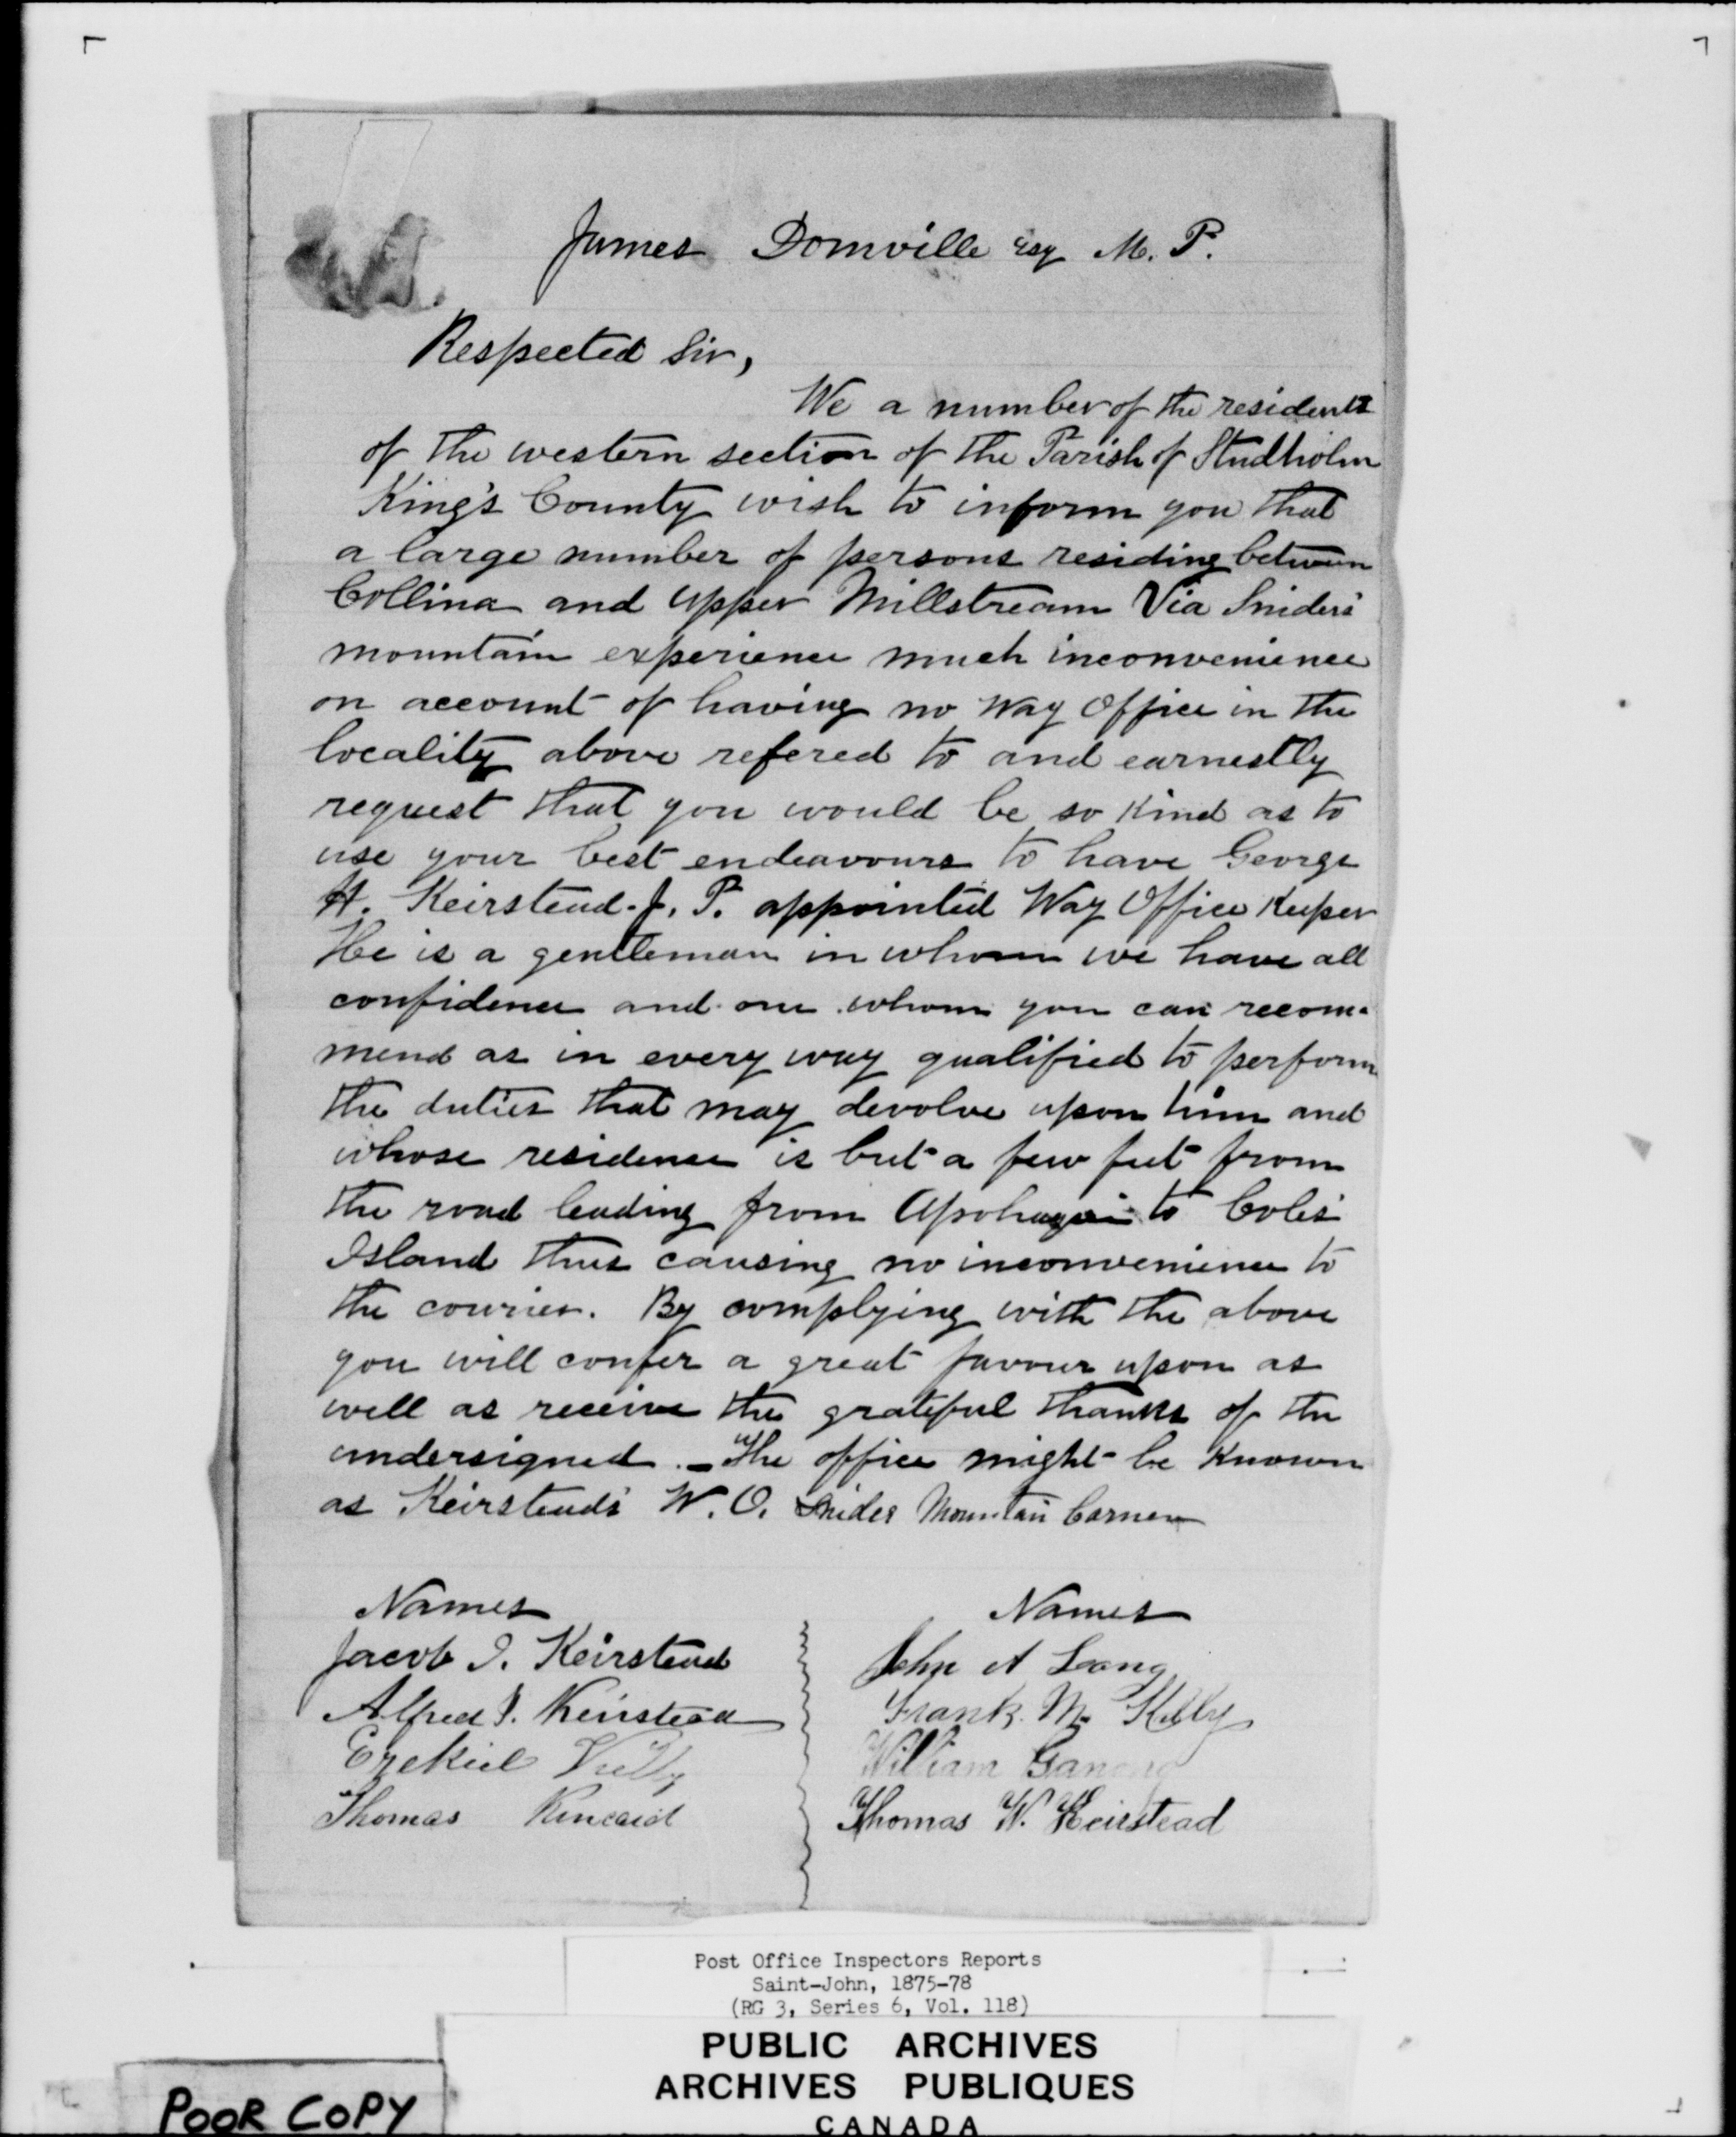 James Domville Esq M. P.
Respected Sir,
We a number of the residents
of the western section of the Parish of Studholm
King's County wish to inform you that
a large number of persons residing between
Collina and Upper Millstream Via Sniders'
mountain experience much inconvenience
on account of having no Way Office in the
locality above refered to and earnestly
request that you would be so kind as to
use your best endeavours to have George
H. Keirstead. J. P. appointed Way Office Keeper
He is a gentleman in whom we have all
confidence and one whom you can recom-
mend as in every way qualified to perform
the duties that may devolve upon him and
whose residence is but a few feet from
the road leading from Apohaqui to Coles'
Island thus causing no inconvenience to
the courier. By complying with the above
you will confer a great favour upon as
well as receive the grateful thanks of the
undersigned. - The office might be known
as Keirsteads' W. O. Snider Mountain Corner
Names
Names
Jacob I. Keirstead
John A Long
Alfred I. Keirstead
Frank M. Kelly
Ezekiel Kelly
William Ganong
Thomas Kincaid
Thomas W. Keirstead
Post Office Inspectors Reports
Saint-John, 1875-78
(RG 3, Series 6, Vol. 118)
PUBLIC ARCHIVES
ARCHIVES PUBLIQUES
CANADA
POOR COPY